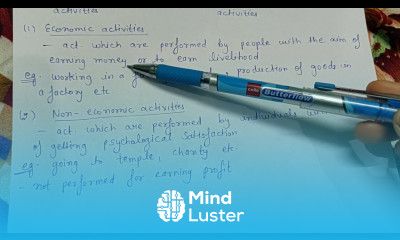 activities
activities
(1) Economic activities
- act which are performed by people with the aim of
earning money or to earn livelihood
eg - working in a production of goods in
a factory etc
(2) Non-economic activities
- act which are performed by individuals
of getting psychological satisfaction
eg - going to temple, charity etc
- not performed for earning profit
Butterflow
Mind
Luster